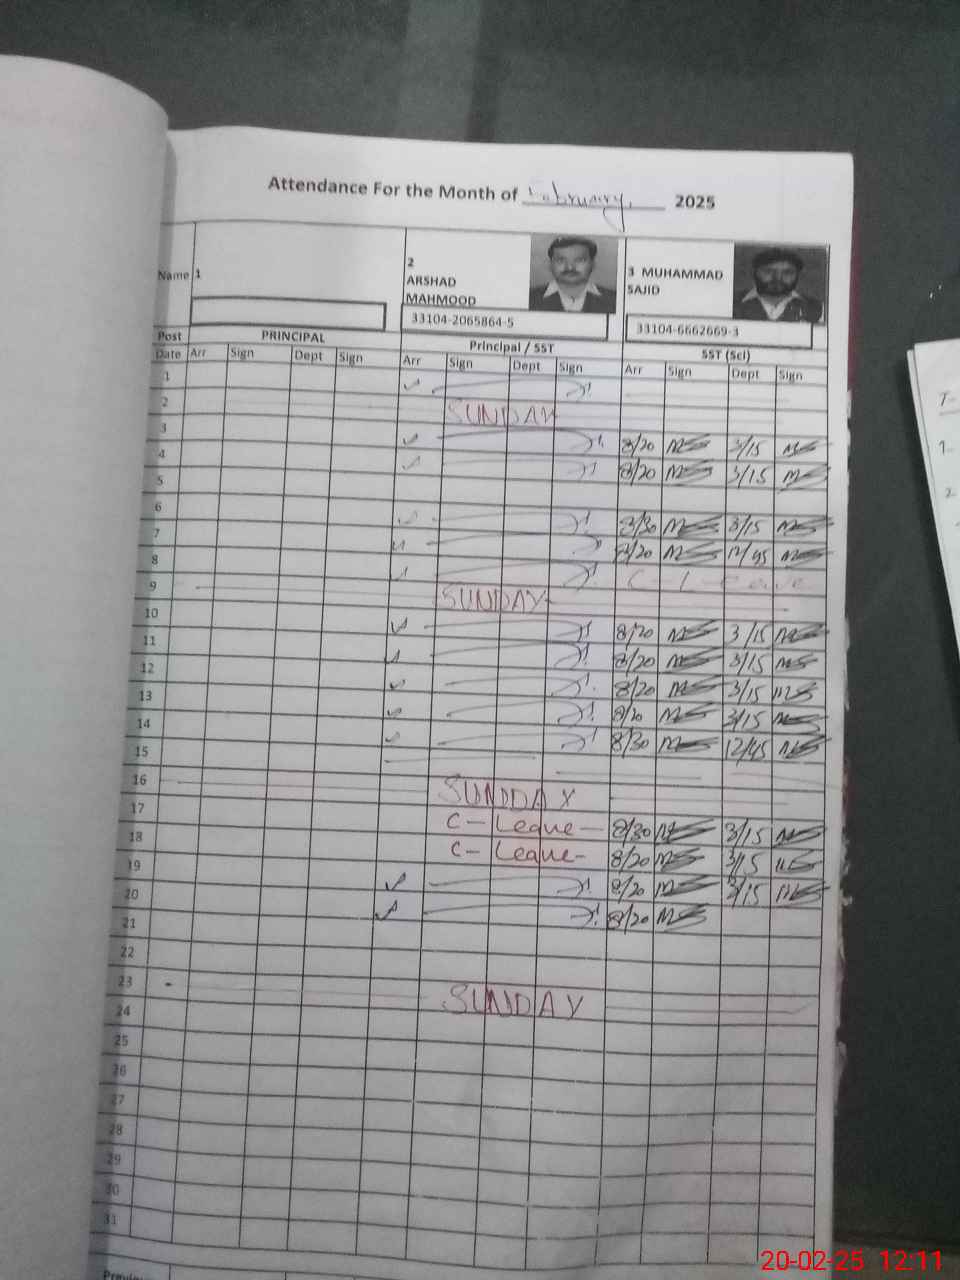 Attendance For the Month of February, 2025
Name 1 2 ARSHAD MAHMOOD 3 MUHAMMAD SAJID
33104-2065864-5 33104-6662669-3
Post PRINCIPAL Principal / SST SST (Sci)
Date Arr Sign Dept Sign Arr Sign Dept Sign Arr Sign Dept Sign
1
2 SUNDAY
3 8/20 3/15
4 8/20 3/15
5
6 3/15
7 8/20
8 C-Leave
9 SUNDAY
10 8/20 3/15
11 8/20 3/15
12 8/20 3/15
13 8/20 3/15
14 8/30 12/45
15
16 SUNDAY
17 C-Leave 8/30 3/15
18 C-Leave 8/20 3/15
19 8/20 3/15
20 8/20
21
22
23 SUNDAY
24
25
26
27
28
29
30
31
20-02-25 12:11